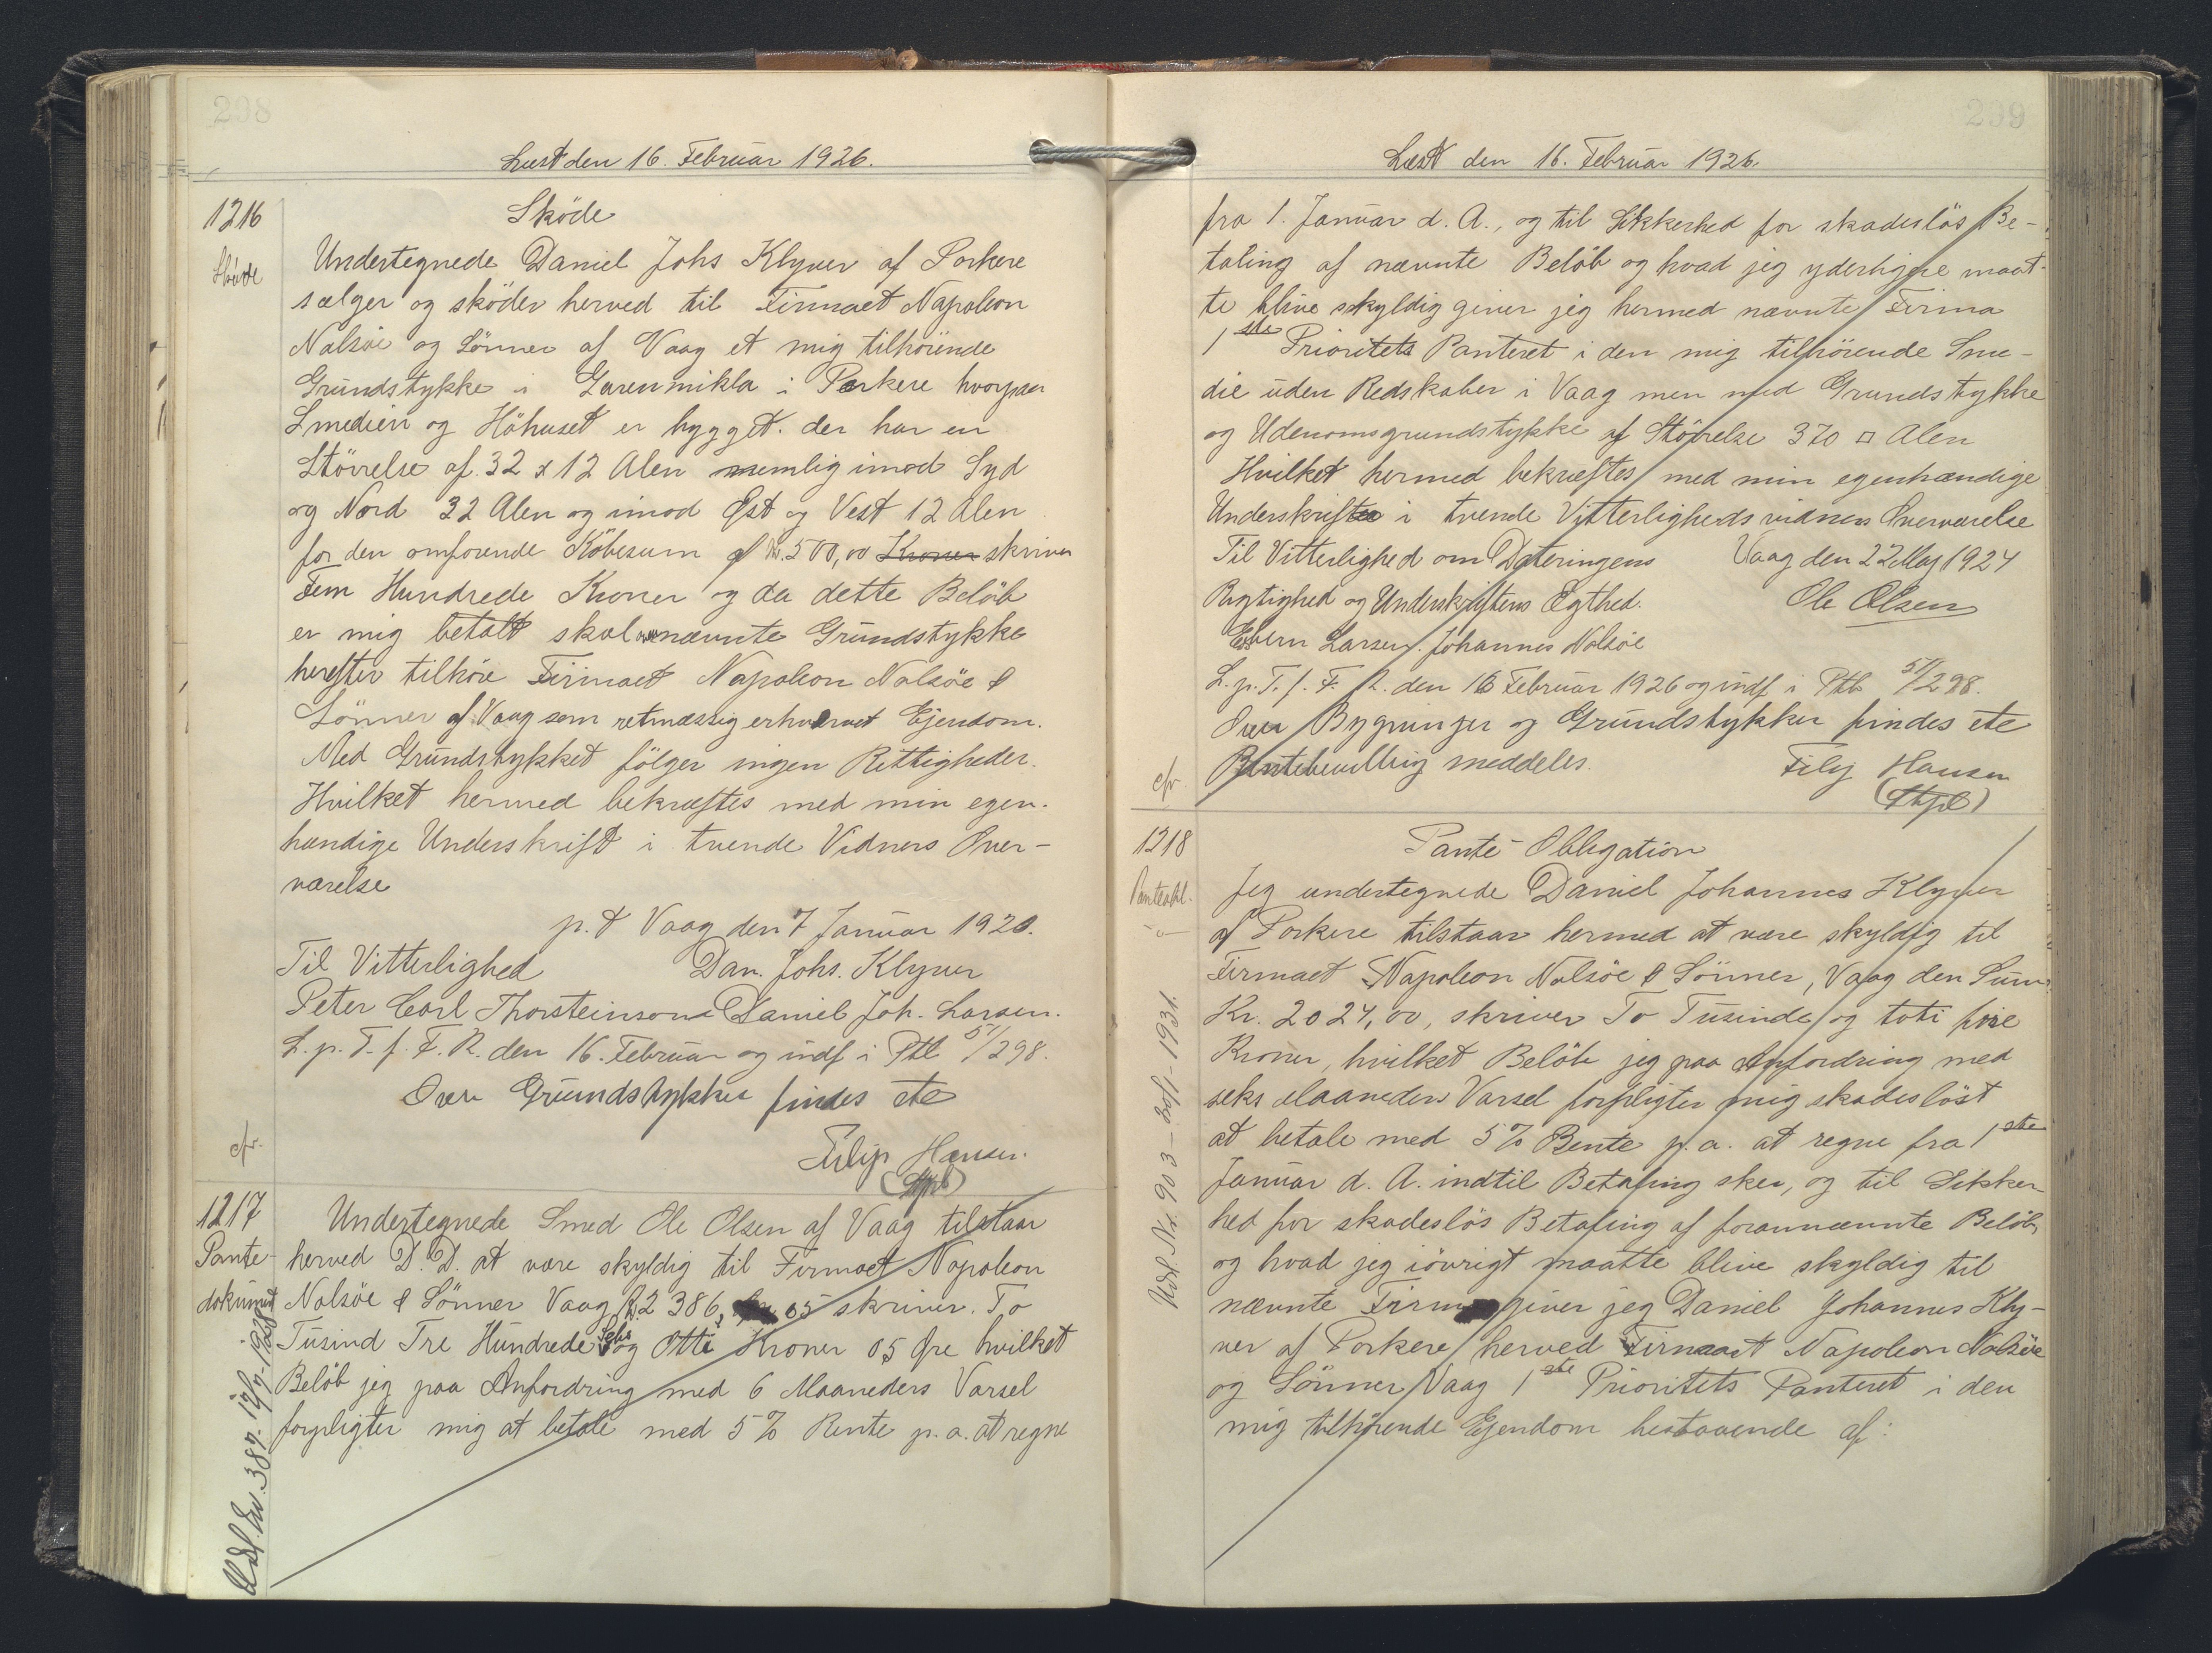 298
Læst den 16. Februar 1926.
1216
Sköde
Sköde
Undertegnede Daniel Johs Klyver af Porkere
sælger og sköder herved til Firmaet Napoleon
Nolsöe og Sönner af Vaag et mig tilhörende
Grundstykke i Garenmikla i Porkere hvorpaa
Smedien og Höhuset er bygget. der har en
Störrelse af. 32 x 12 Alen nemlig imod Syd
og Nord 32 Alen og imod Øst og Vest 12 Alen
for den omforende Köbesum af Kr. 500,00 Kroner skriver
Fem Hundrede Kroner og da dette Belöb
er mig betalt skal nævnte Grundstykke
herefter tilhöre Firmaet Napoleon Nolsöe &
Sönner af Vaag som retmæssig erhvervet Ejendom.
Med Grundstykket fölger ingen Rettigheder.
Hvilket hermed bekræftes med min egen-
hændige Underskrift i tvende Vidners Over-
værelse
p.t Vaag den 7 Januar 1920.
Til Vitterlighed Dan. Johs. Klyver
Peter Carl Thorsteinson Daniel Joh. Larsen.
L. p. T. f. F. R. den 16. Februar og indf i Ptb 5/298.
Over Grundstykker findes etc
cfr.
Filip Hansen.
1217
Pante-
dokument
Undertegnede Smed Ole Olsen af Vaag tilstaar
herved D. D. at være skyldig til Firmaet Napoleon
Nolsöe & Sönner Vaag Kr. 2386, 05 skriver. To
Tusind Tre Hundrede Seks og Otti Kroner 05 Øre hvilket
Belöb jeg paa Anfordring med 6 Maaneders Varsel
forpligter mig at betale med 5 % Rente p. a. at regne
299
Læst den 16. Februar 1926.
fra 1. Januar d. A., og til Sikkerhed for skadeslös Be-
taling af nævnte Belöb og hvad jeg yderligere maat-
te blive skyldig giver jeg hermed nævnte Firma
1ste Prioritets Panteret i den mig tilhörende Sme-
die uden Redskaber i Vaag men med Grundstykke
og Udenomsgrundstykke af Störrelse 370 □ Alen
Hvilket hermed bekræftes med min egenhændige
Underskrift i tvende Vitterligheds vidners Overværelse
Til Vitterlighed om Dateringens Vaag den 22 Maj 1924
Rigtighed og Underskriftens Ægthed. Ole Olsen
Larsen. Johannes Nolsöe
L. p. T. f. F. R. den 16 Februar 1926 og indf i Ptb 5/298.
Over Bygninger og Grundstykker findes etc
cfr. Pantebevilling meddeles. Filip Hansen
1218
Panteobl.
Pante-Obligation
Jeg undertegnede Daniel Johannes Klyver
af Porkere tilstaar hermed at være skyldig til
Firmaet Napoleon Nolsöe & Sönner, Vaag den Sum
Kr. 2024,00, skriver To Tusinde og toti fire
Kroner, hvilket Belöb jeg paa Anfordring med
seks Maaneders Varsel forpligter mig skadeslöst
at betale med 5 % Rente p. a. at regne fra 1ste
Januar d. A. indtil Betaling sker, og til Sikker-
hed for skadeslös Betaling af forannævnte Belöb,
og hvad jeg iövrigt maatte blive skyldig til
nævnte Firma giver jeg Daniel Johannes Kly-
ver af Porkere herved Firmaet Napoleon Nolsöe
og Sönner Vaag 1ste Prioritets Panteret i den
mig tilhörende Ejendom bestaaende af: